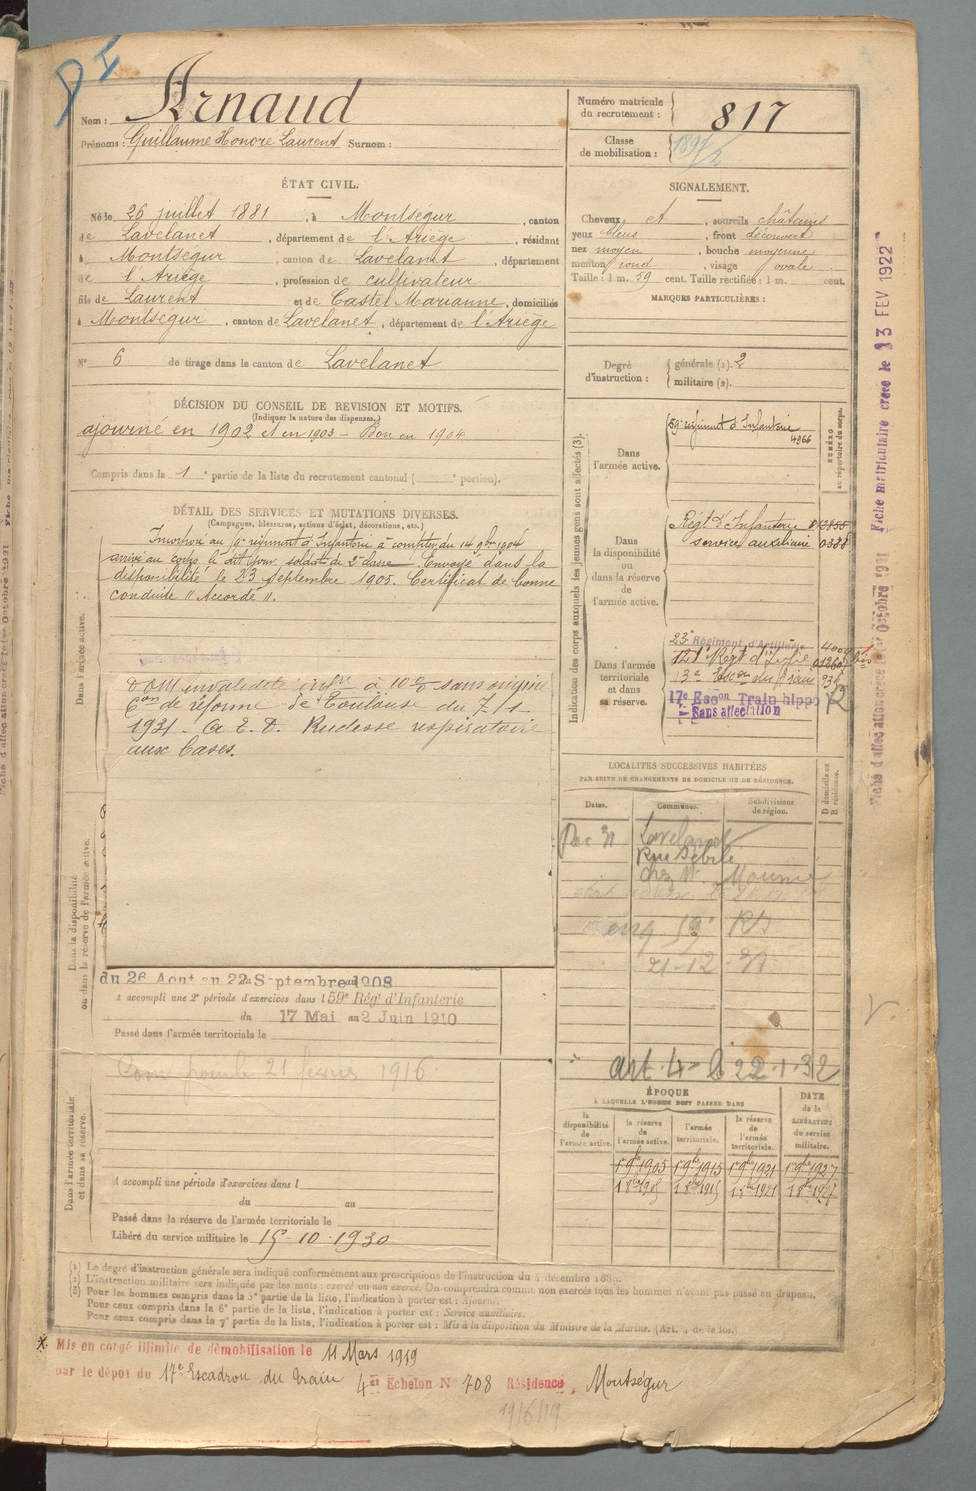 Nom : Arnaud
Prénoms : Guillaume Honoré Laurent Surnom :
Numéro matricule du recrutement : 817
Classe de mobilisation :
ÉTAT CIVIL.
Né le 26 juillet 1881, à Montségur, canton
de Lavelanet, département de l'Ariège, résidant
à Montségur, canton de Lavelanet, département
de l'Ariège, profession de cultivateur
fils de Laurent et de Castel Marianne, domiciliés
à Montségur, canton de Lavelanet, département de l'Ariège
N° 6 de tirage dans le canton de Lavelanet
SIGNALEMENT.
Cheveux et, sourcils châtains
yeux bleus, front découvert
nez moyen, bouche moyenne
menton rond, visage ovale
Taille : 1 m. 59 cent. Taille rectifiée : 1 m. cent.
MARQUES PARTICULIÈRES :
Degré d'instruction : générale (1). 2
militaire (2).
DÉCISION DU CONSEIL DE REVISION ET MOTIFS.
(Indiquer la nature des dispenses.)
ajourné en 1902 et en 1903 – Bon en 1904
Compris dans la 1e partie de la liste du recrutement cantonal ( portion).
DÉTAIL DES SERVICES ET MUTATIONS DIVERSES.
(Campagnes, blessures, actions d'éclat, décorations, etc.)
Incorporé au régiment d'Infanterie à compter du 14 9bre 1904
arrivé au corps le dit jour soldat de 2e classe. Envoyé dans la
disponibilité le 23 septembre 1905. Certificat de bonne
conduite "Accordé".
invalidité infre à 10% sans origine
Con de réforme de Toulouse du 7.1.
1931. Rudesse respiratoire
aux bases.
du 26 Aout au 22 Septembre 1908
A accompli une 2e période d'exercices dans l 59e Régt d'Infanterie
du 17 Mai au 2 Juin 1910
Passé dans l'armée territoriale le
21 février 1916
A accompli une période d'exercices dans l
du au
Passé dans la réserve de l'armée territoriale le
Libéré du service militaire le 15-10-1930
Dans l'armée active.
Dans la disponibilité ou dans la réserve de l'armée active.
Dans l'armée territoriale et dans sa réserve.
Indication des corps auxquels les jeunes gens sont affectés (3).
NUMÉRO au répertoire du corps.
Dans l'armée active. 59e régiment d'Infanterie 4866
Dans la disponibilité ou dans la réserve de l'armée active.
Régt d'Infanterie
service auxiliaire 0388
Dans l'armée territoriale et dans sa réserve.
23e Régiment d'Artillerie
17e Escon Train hippo
Sans affectation
LOCALITÉS SUCCESSIVES HABITÉES
PAR SUITE DE CHANGEMENTS DE DOMICILE OU DE RÉSIDENCE.
Dates. Communes. Subdivisions de région. D domicile ou R résidence.
Lavelanet
Rue
chez Mr
art. 4 - 22.1.32
ÉPOQUE
À LAQUELLE L'HOMME DOIT PASSER DANS
la disponibilité de l'armée active.
la réserve de l'armée active.
l'armée territoriale.
la réserve de l'armée territoriale.
DATE de la LIBÉRATION du service militaire.
1er 9bre 1905 1er 9bre 1915 1er 9bre 1921 1er 9bre 1927
(1) Le degré d'instruction générale sera indiqué conformément aux prescriptions de l'instruction du 4 décembre 1889.
(2) L'instruction militaire sera indiquée par les mots : exercé ou non exercé. On comprendra comme non exercés tous les hommes n'ayant pas passé au drapeau.
(3) Pour les hommes compris dans la 5e partie de la liste, l'indication à porter est : Ajourné.
Pour ceux compris dans la 6e partie de la liste, l'indication à porter est : Service auxiliaire.
Pour ceux compris dans la 7e partie de la liste, l'indication à porter est : Mis à la disposition du Ministre de la Marine. (Art. 4 de la loi.)
Mis en congé illimité de démobilisation le 11 Mars 1919
par le dépôt du 17e Escadron du train 4e Echelon N° 708 Résidence, Montségur
19/6/19
Fiche matriculaire créée le 13 FEV 1922
Fiche d'affectation créée le 1er Octobre 1921